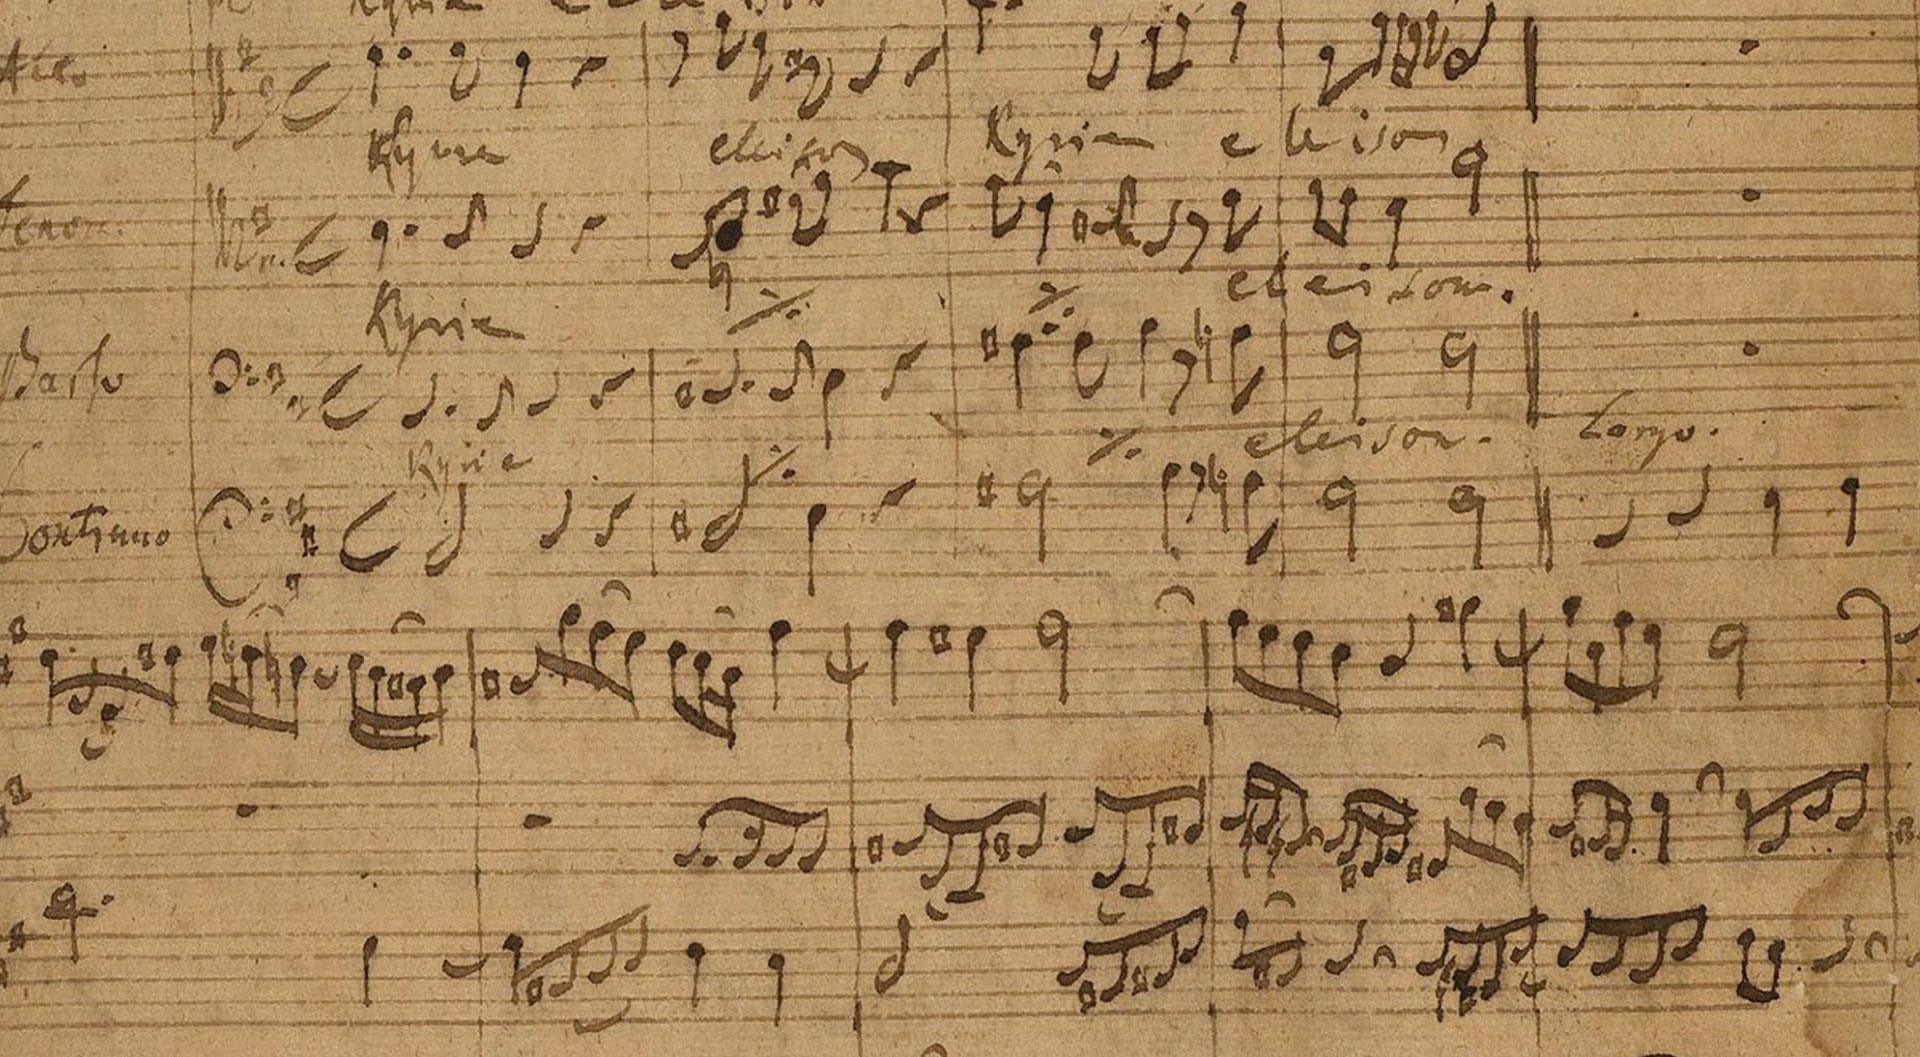 Kyrie
Alto
Kyrie eleison Kyrie eleison
Tenore.
Kyrie eleison.
Basso
Kyrie eleison. Largo.
Continuo